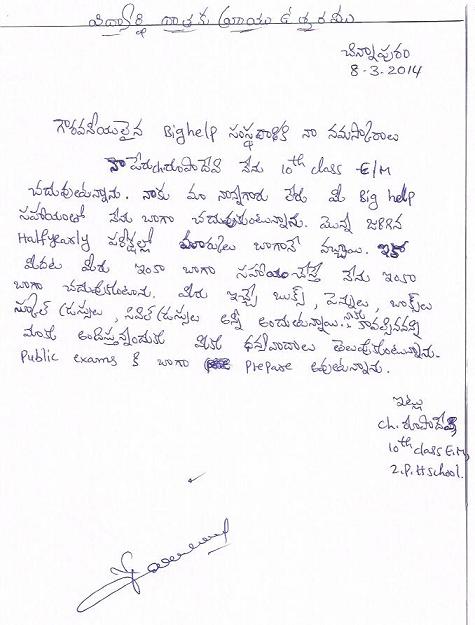 విద్యార్థి దాతకు వ్రాయు ఉత్తరము
చిన్నాపురం
8-3-2014
గౌరవనీయులైన Bighelp సంస్థవారికి నా నమస్కారాలు
నా పేరు ch.రూపాదేవి నేను 10th class E/M
చదువుతున్నాను. నాకు మా నాన్నగారు లేరు మీ Big help
సహాయంతో నేను బాగా చదువుకుంటున్నాను. మొన్న జరిగిన
Halfyearly పరీక్షల్లో మార్కులు బాగానే వచ్చాయి. ఇక
మీదట మీరు ఇంకా బాగా సహాయం చేస్తే నేను ఇంకా
బాగా చదువుకుంటాను. మీరు ఇచ్చే బుక్స్, పెన్నులు, బాక్స్‌లు
స్కూల్ డ్రస్సులు, సివిల్ డ్రస్సులు అన్నీ అందుతున్నాయి. నాకు కావల్సినవన్ని
మాకు అందిస్తున్నందుకు మీకు ధన్యవాదాలు తెలుపుకుంటున్నాను.
Public exams కి బాగా Prepare అవుతున్నాను.
ఇట్లు
ch. రూపాదేవి
10th class E.M,
Z.P.H school.